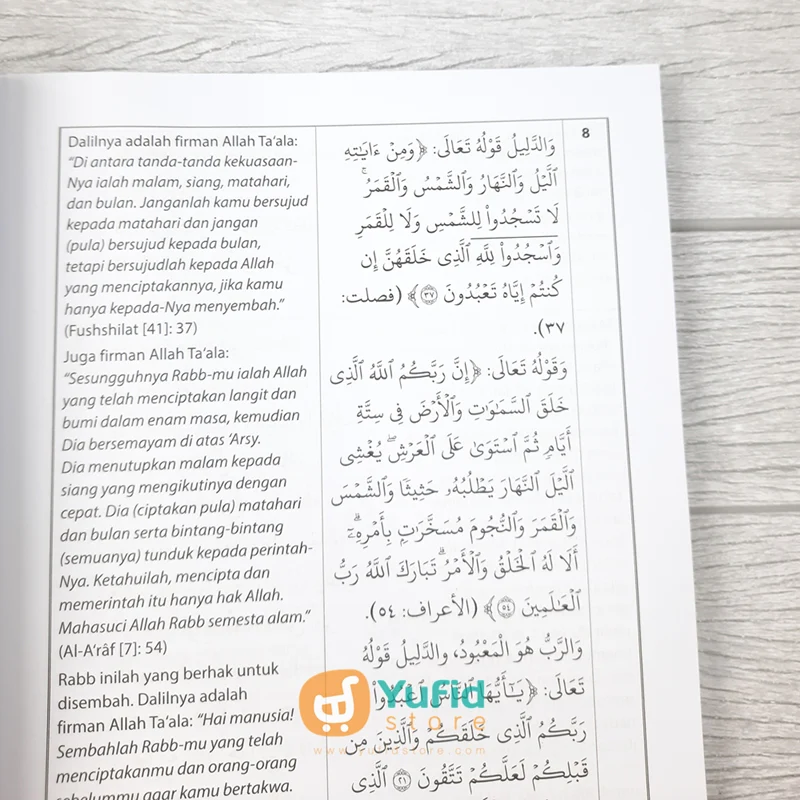 Dalilnya adalah firman Allah Ta‘ala:
“Di antara tanda-tanda kekuasaan-
Nya ialah malam, siang, matahari,
dan bulan. Janganlah kamu bersujud
kepada matahari dan jangan
(pula) bersujud kepada bulan,
tetapi bersujudlah kepada Allah
yang menciptakannya, jika kamu
hanya kepada-Nya menyembah.”
(Fushshilat [41]: 37)
Juga firman Allah Ta‘ala:
“Sesungguhnya Rabb-mu ialah Allah
yang telah menciptakan langit dan
bumi dalam enam masa, kemudian
Dia bersemayam di atas ‘Arsy.
Dia menutupkan malam kepada
siang yang mengikutinya dengan
cepat. Dia (ciptakan pula) matahari
dan bulan serta bintang-bintang
(semuanya) tunduk kepada perintah-
Nya. Ketahuilah, mencipta dan
memerintah itu hanya hak Allah.
Mahasuci Allah Rabb semesta alam.”
(Al-A‘râf [7]: 54)
Rabb inilah yang berhak untuk
disembah. Dalilnya adalah
firman Allah Ta‘ala: “Hai manusia!
Sembahlah Rabb-mu yang telah
menciptakanmu dan orang-orang
sebelummu agar kamu bertakwa.
8
وَالدَّلِيلُ قَوْلُهُ تَعَالَى: ﴿وَمِنْ ءَايَٰتِهِ
ٱلَّيْلُ وَٱلنَّهَارُ وَٱلشَّمْسُ وَٱلْقَمَرُ ۚ
لَا تَسْجُدُوا۟ لِلشَّمْسِ وَلَا لِلْقَمَرِ
وَٱسْجُدُوا۟ لِلَّهِ ٱلَّذِى خَلَقَهُنَّ إِن
كُنتُمْ إِيَّاهُ تَعْبُدُونَ ۝٣٧﴾ (فصلت:
٣٧).
وَقَوْلُهُ تَعَالَى: ﴿إِنَّ رَبَّكُمُ ٱللَّهُ ٱلَّذِى
خَلَقَ ٱلسَّمَٰوَٰتِ وَٱلْأَرْضَ فِى سِتَّةِ
أَيَّامٍ ثُمَّ ٱسْتَوَىٰ عَلَى ٱلْعَرْشِ ۖ يُغْشِى
ٱلَّيْلَ ٱلنَّهَارَ يَطْلُبُهُۥ حَثِيثًا وَٱلشَّمْسَ
وَٱلْقَمَرَ وَٱلنُّجُومَ مُسَخَّرَٰتٍۭ بِأَمْرِهِۦٓ ۗ
أَلَا لَهُ ٱلْخَلْقُ وَٱلْأَمْرُ ۗ تَبَارَكَ ٱللَّهُ رَبُّ
ٱلْعَٰلَمِينَ ۝٥٤﴾ (الأعراف: ٥٤).
وَالرَّبُّ هُوَ الْمَعْبُودُ، والدَّلِيلُ قَوْلُهُ
تَعَالَى: ﴿يَٰٓأَيُّهَا ٱلنَّاسُ ٱعْبُدُوا۟
رَبَّكُمُ ٱلَّذِى خَلَقَكُمْ وَٱلَّذِينَ مِن
قَبْلِكُمْ لَعَلَّكُمْ تَتَّقُونَ ۝٢١ ٱلَّذِى
Yufid
store
www.yufidstore.com